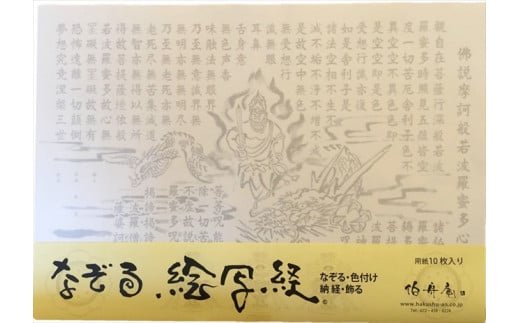 佛説摩訶般若波羅蜜多心
観自在菩薩行深般若波
羅蜜多時照見五蘊皆空
度一切苦厄舎利子色不
異空空不異色色即
是空空即是色
受想行識亦復
如是舎利子是
諸法空相不生不
滅不垢不浄不増不減
是故空中無色
無受想行
識無眼
耳鼻
舌身意
無色声香
味触法無眼界
乃至無意識界
無無明亦無無明尽
乃至無老死亦無
老死尽無苦集滅道
無智亦無得以無所
得故菩提薩埵依般
若波羅蜜多故心無
罣礙無罣礙故無有
恐怖遠離一切顛倒
夢想究竟涅槃三世
なぞる 絵写経
なぞる・色付け
納経・飾る
用紙10枚入り
www.hakushu-an.co.jp